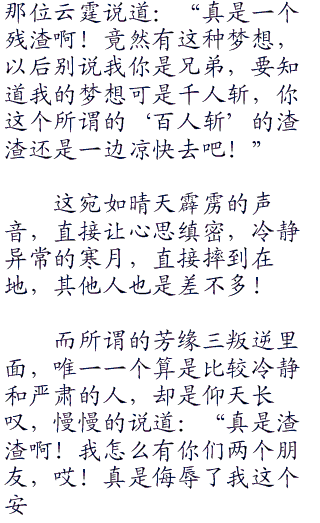 那位云霆说道：“真是一个
残渣啊！竟然有这种梦想，
以后别说我你是兄弟，要知
道我的梦想可是千人斩，你
这个所谓的‘百人斩’的渣
渣还是一边凉快去吧！”
这宛如晴天霹雳的声
音，直接让心思缜密，冷静
异常的寒月，直接摔到在
地，其他人也是差不多！
而所谓的芳缘三叛逆里
面，唯一一个算是比较冷静
和严肃的人，却是仰天长
叹，慢慢的说道：“真是渣
渣啊！我怎么有你们两个朋
友，哎！真是侮辱了我这个
安